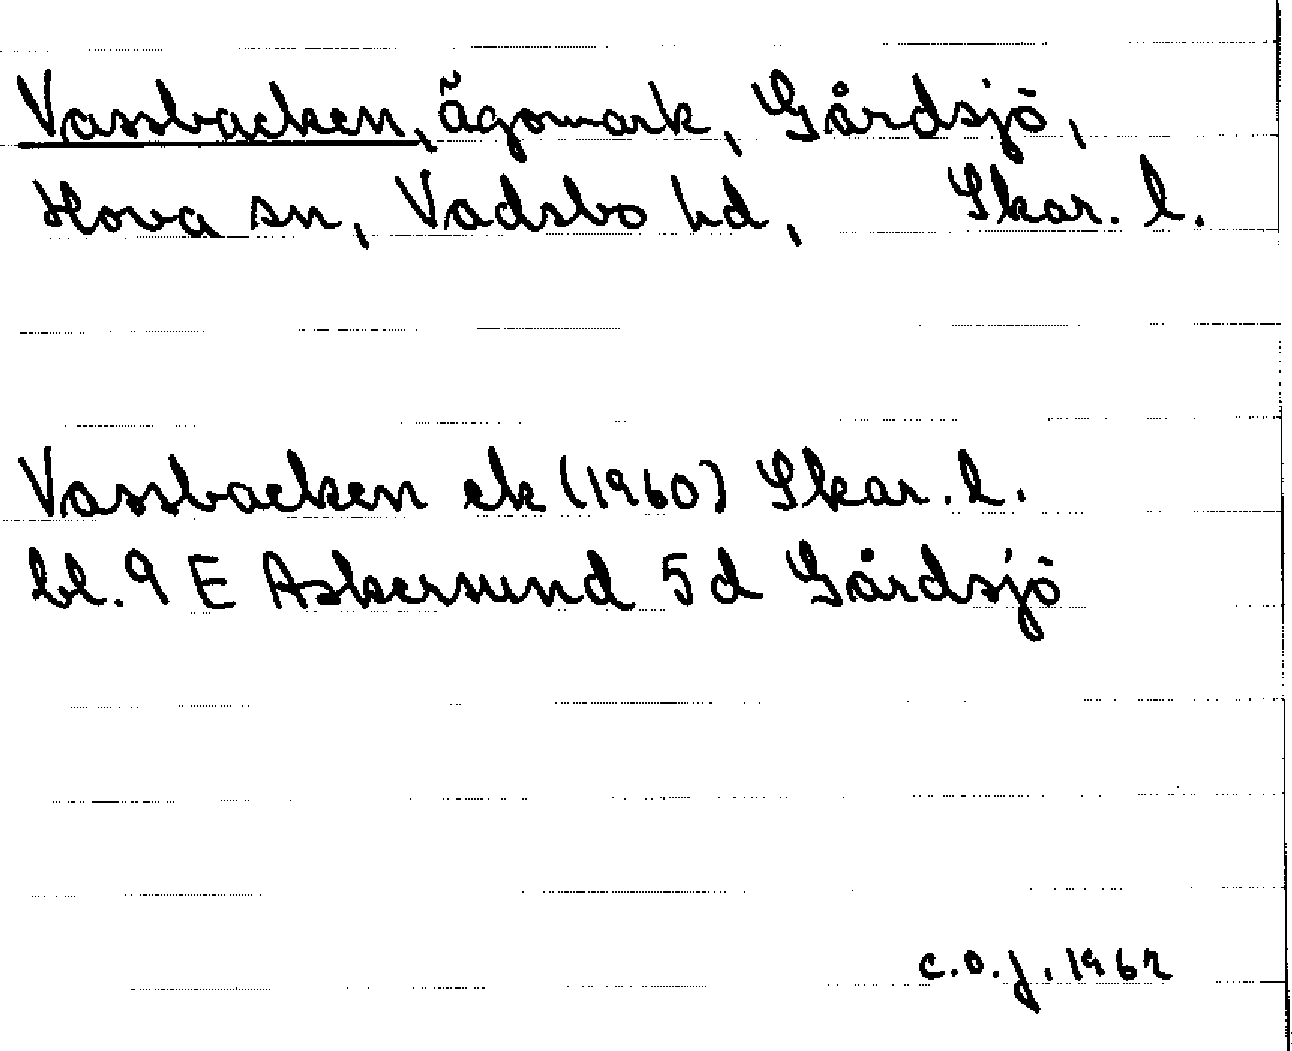 Vassbacken, ägomark, Gårdsjö,
Hova sn, Vadsbo hd, Skar. l.
Vassbacken ek (1960) Skar. l.
bl. 9 E Askersund 5 d Gårdsjö
C.O.J. 1962